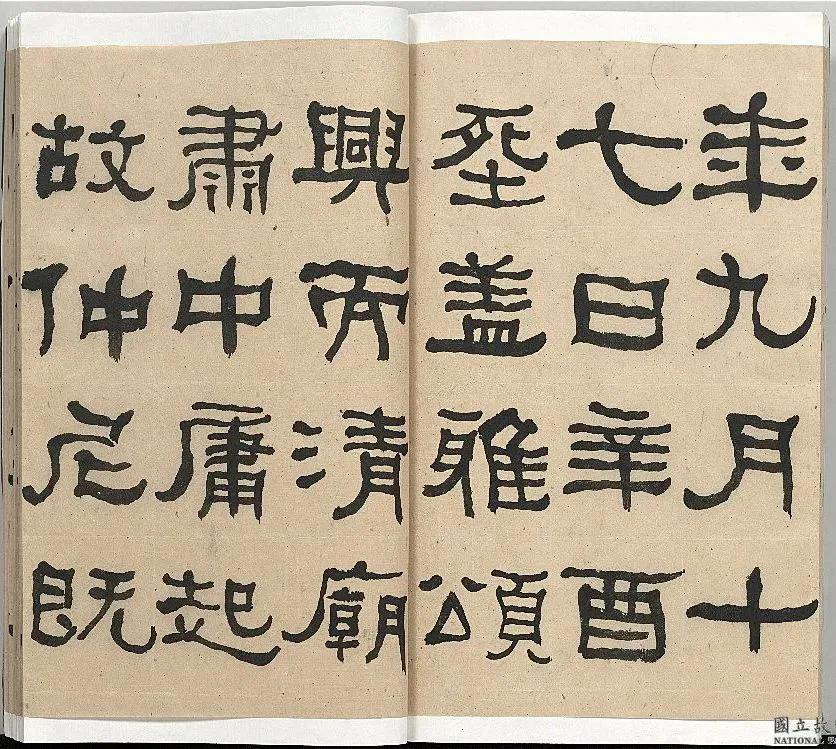 年九月十
七日辛酉
葬盖雅頌
興而清廟
肅中庸起
故仲尼既
國立故
NATIONAL